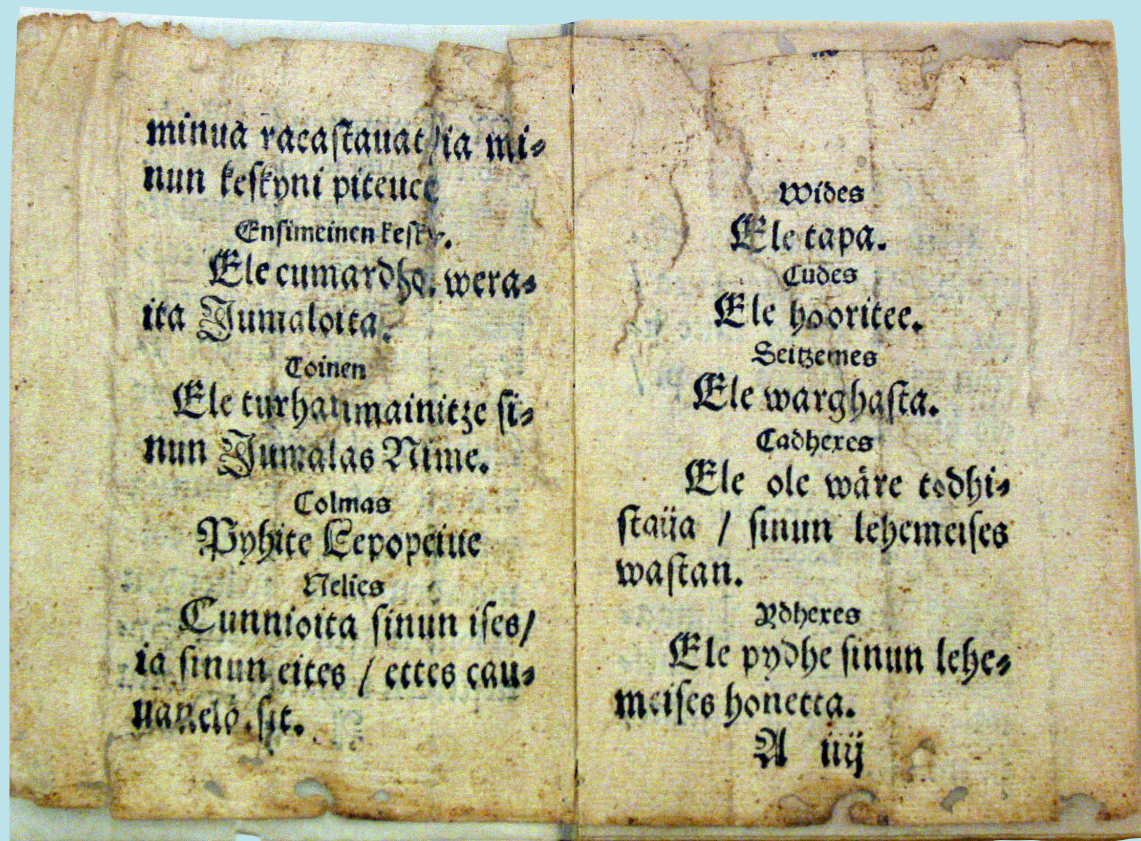 minua racastauat/ia mi-
nun keskyni piteuet
Ensimeinen kesky.
Ele cumardha wera-
ita Jumaloita.
Toinen
Ele turhanmainitze si-
nun Jumalas Nime.
Colmas
Pyhite Lepopeiue
Nelies
Cunnioita sinun ises/
ia sinun eites / ettes cau-
uan elä
Wides
Ele tapa.
Cudes
Ele hooritee.
Seitzemes
Ele warghasta.
Cadhexes
Ele ole wäre todhi-
staija / sinun lehemeises
wastan.
Ydhexes
Ele pydhe sinun lehe-
meises honetta.
A iiij